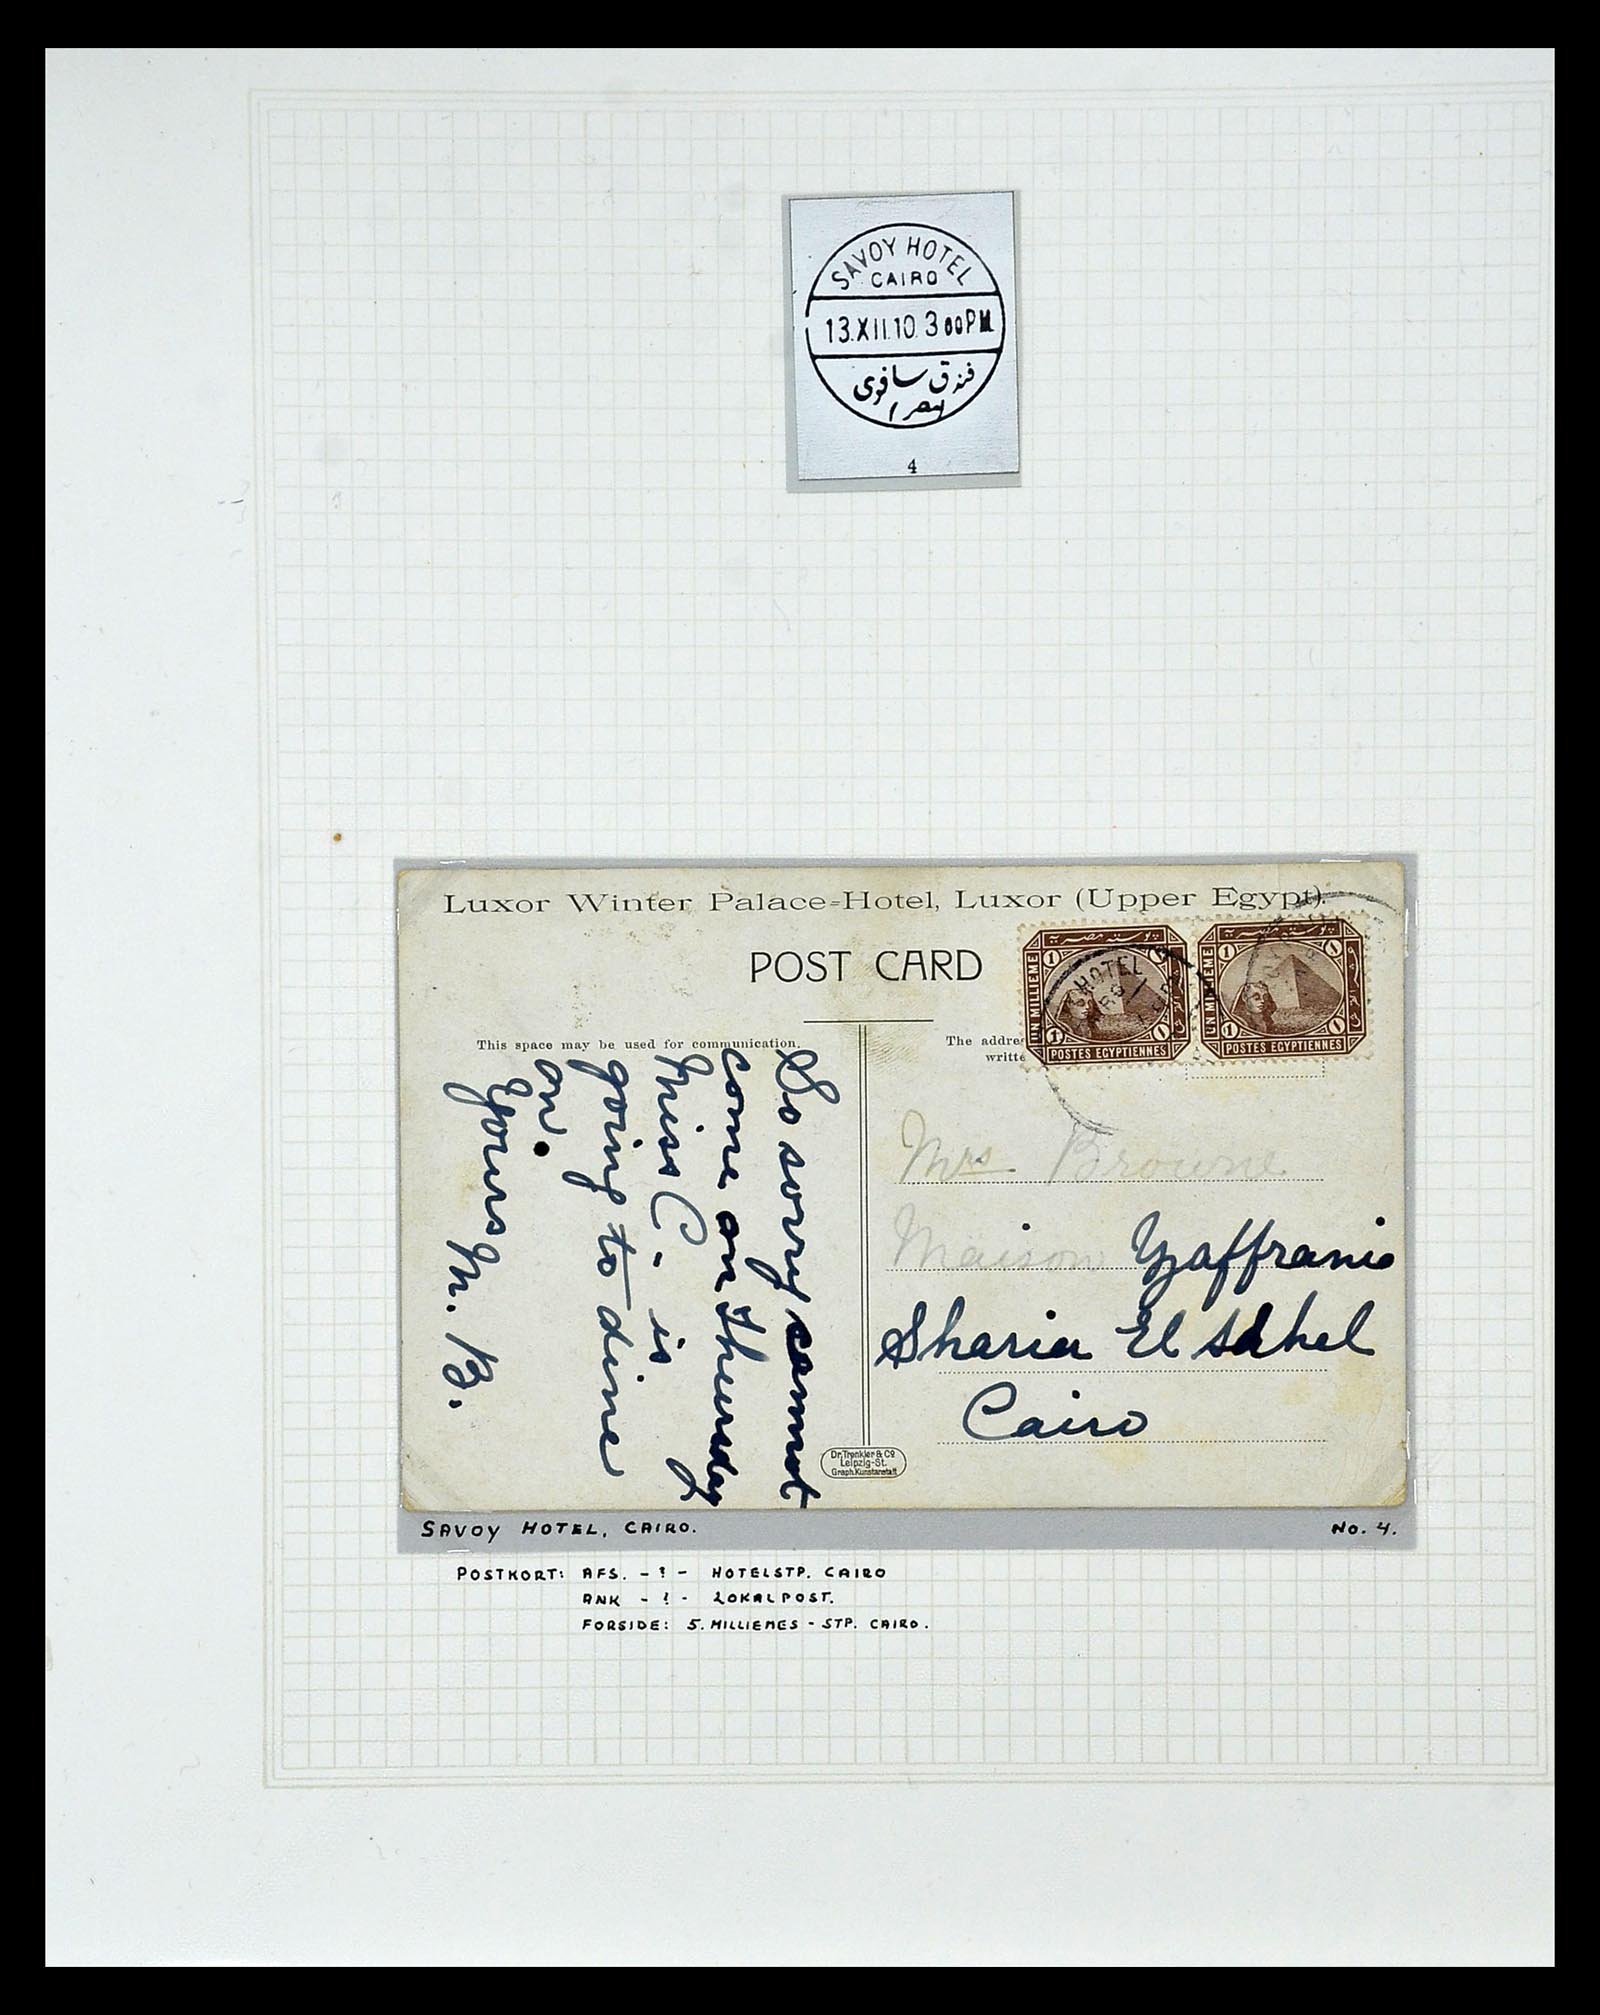 SAVOY HOTEL
CAIRO
13.XII.10 3 00 PM
فندق سافوى
مصر
4
Luxor Winter Palace-Hotel, Luxor (Upper Egypt).
POST CARD
This space may be used for communication.
The addre
writte
UN MILLIEME
POSTES EGYPTIENNES
UN MILLIEME
POSTES EGYPTIENNES
HOTEL
So sorry cannot
come on Thursday
Miss C. is
going to dine
on.
Yours M. B.
Mrs Browne
Maison Yzaffranio
Sharia El Sahel
Cairo
Dr. Trenkler & Co
Leipzig-St.
Graph. Kunstanstalt
SAVOY HOTEL, CAIRO.
No. 4.
POSTKORT: AFS. - ? - HOTELSTP. CAIRO
ANK - ? - LOKALPOST.
FORSIDE: 5. MILLIEMES - STP. CAIRO.